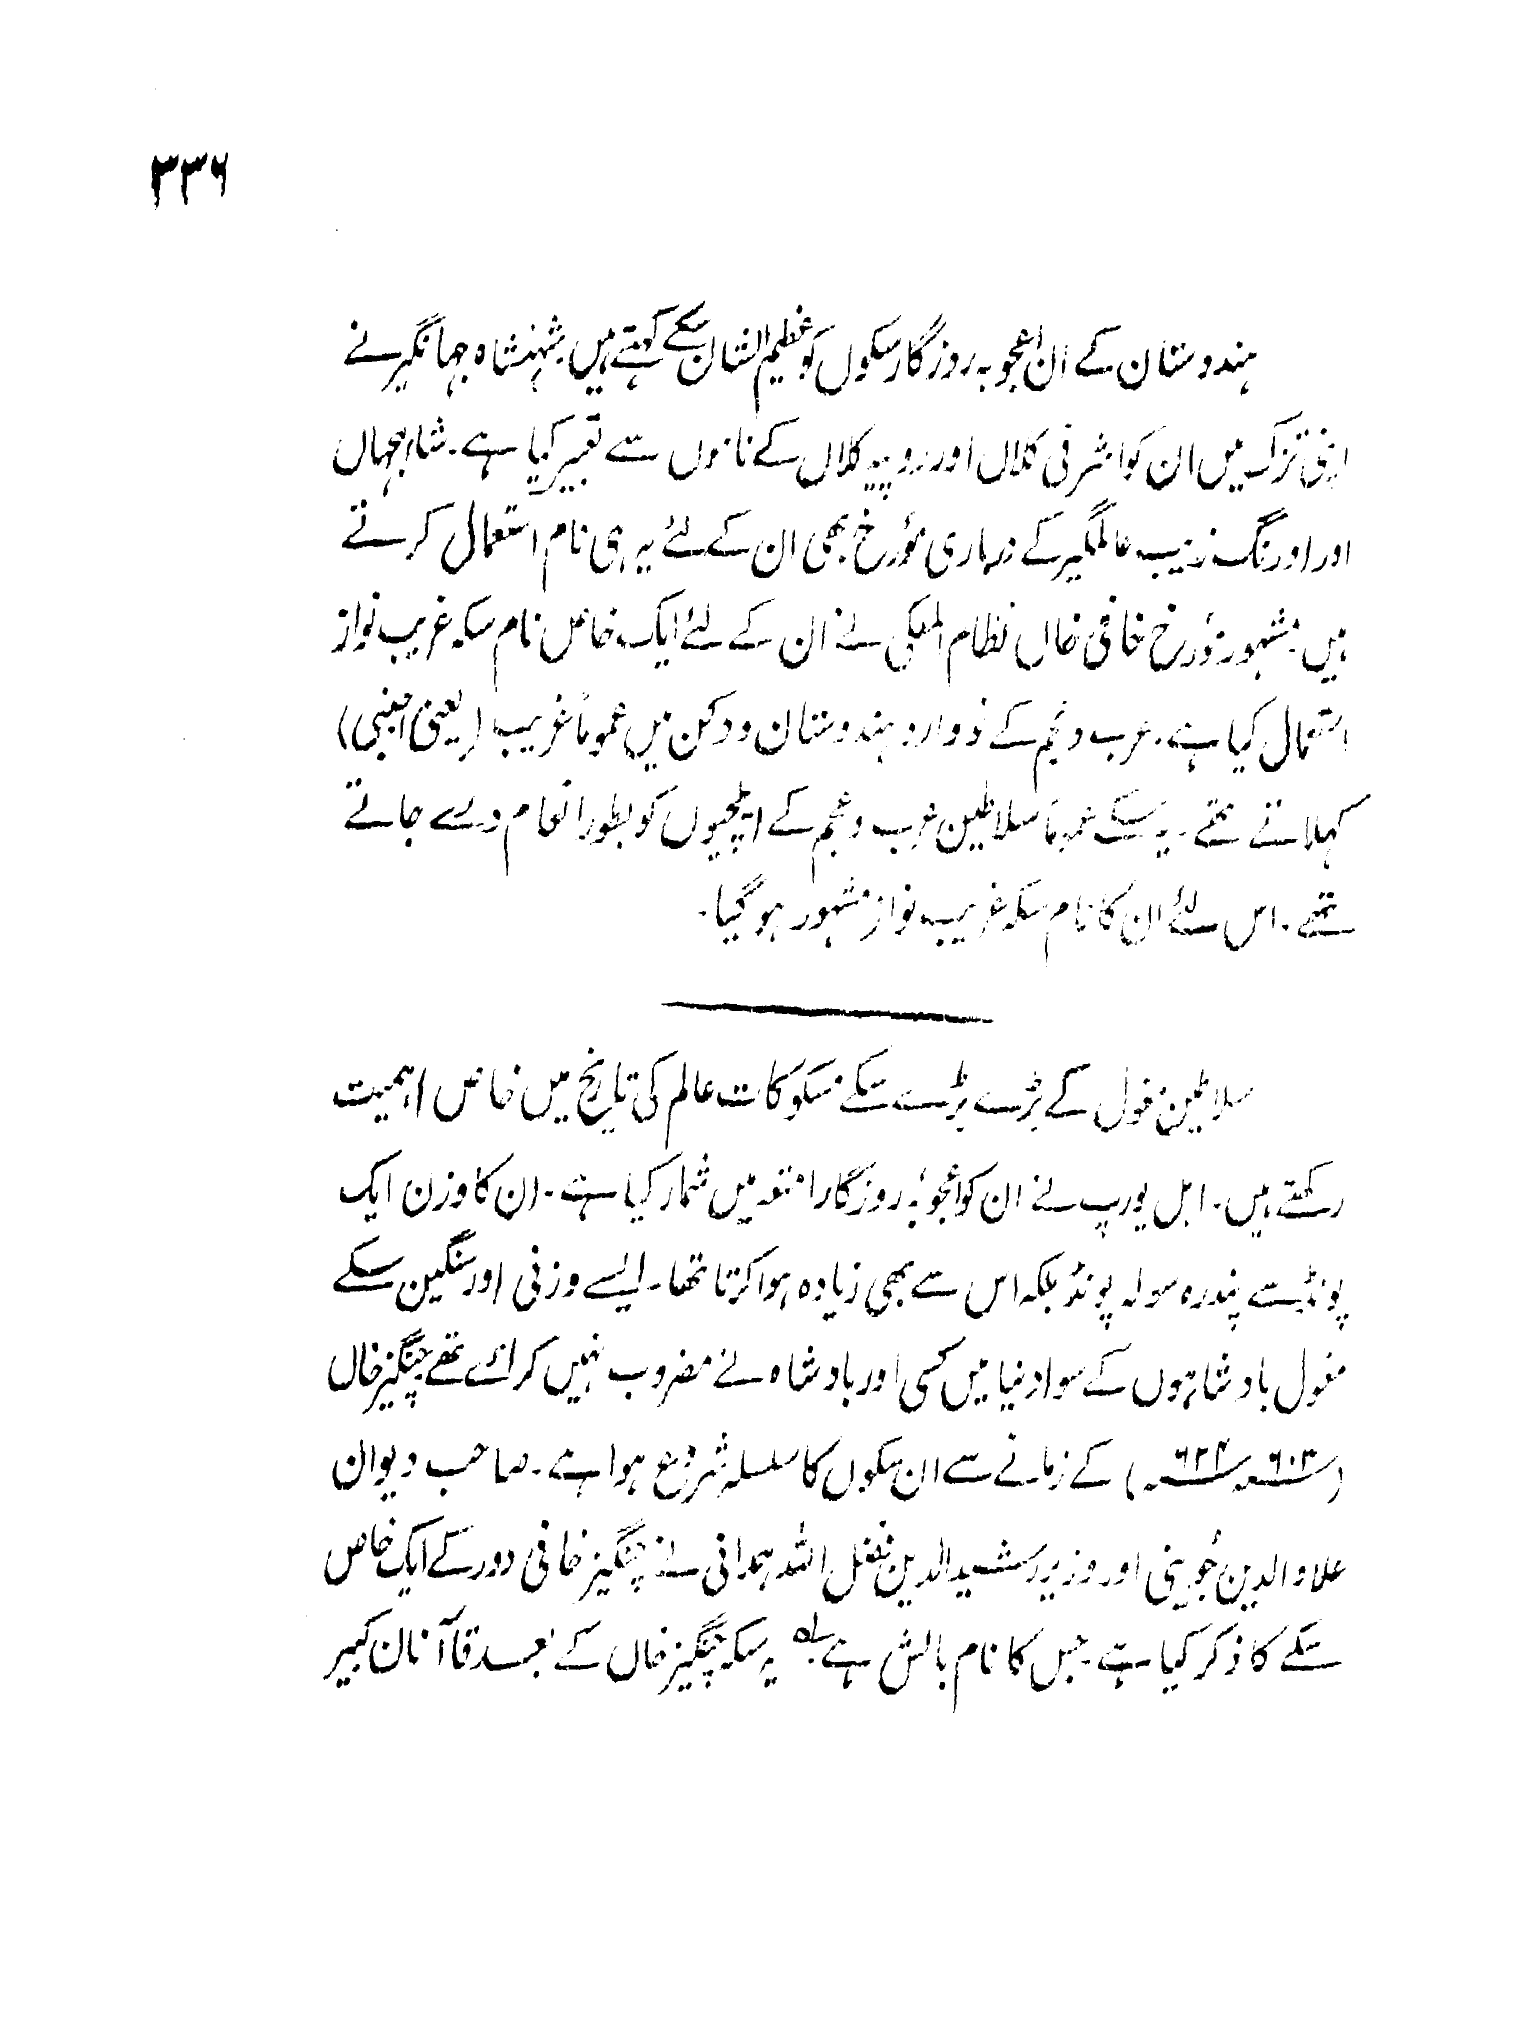 ۳۳۶
ہندوستان کے ان اعجوبہ روزگار سکوں کو عظیم الشان سکے کہتے ہیں۔ شہنشاہ جہانگیر نے
اپنی تزک میں ان کو اشرفی کلاں اور روپیہ کلاں کے ناموں سے تعبیر کیا ہے۔ شاہجہاں
اور اورنگ زیب عالمگیر کے درباری مؤرخ بھی ان کے لئے یہ ہی نام استعمال کرتے
ہیں۔ مشہور مؤرخ خافی خاں نظام الملکی نے ان کے لئے ایک خاص نام سکہ غریب نواز
استعمال کیا ہے۔ عرب و عجم کے نو وارد ہندوستان و دکن میں عموماً غریب (یعنی اجنبی)
کہلاتے تھے۔ یہ سکے عموماً سلاطین عرب و عجم کے ایلچیوں کو بطور انعام دے جاتے
تھے۔ اس لئے ان کا نام سکہ غریب نواز مشہور ہو گیا۔
سلاطین مغول کے بڑے بڑے سکے مسکوکات عالم کی تاریخ میں خاص اہمیت
رکھتے ہیں۔ اہل یورپ نے ان کو اعجوبۂ روزگار امتعہ میں شمار کیا ہے۔ ان کا وزن ایک
پونڈ سے پندرہ سولہ پونڈ بلکہ اس سے بھی زیادہ ہوا کرتا تھا۔ ایسے وزنی اور سنگین سکے
مغول بادشاہوں کے سوا دنیا میں کسی اور بادشاہ نے مضروب نہیں کرائے تھے چنگیز خاں
(۶۰۳ھ ۶۲۴ھ) کے زمانے سے ان سکوں کا سلسلہ شروع ہوا ہے۔ صاحب دیوان
علاء الدین جُوینی اور وزیر رشید الدین فضل اللہ ہمدانی نے چنگیز خانی دور کے ایک خاص
سکے کا ذکر کیا ہے جس کا نام بالش ہے۔ؔ یہ سکہ چنگیز خاں کے بعد قاآنان کبیر